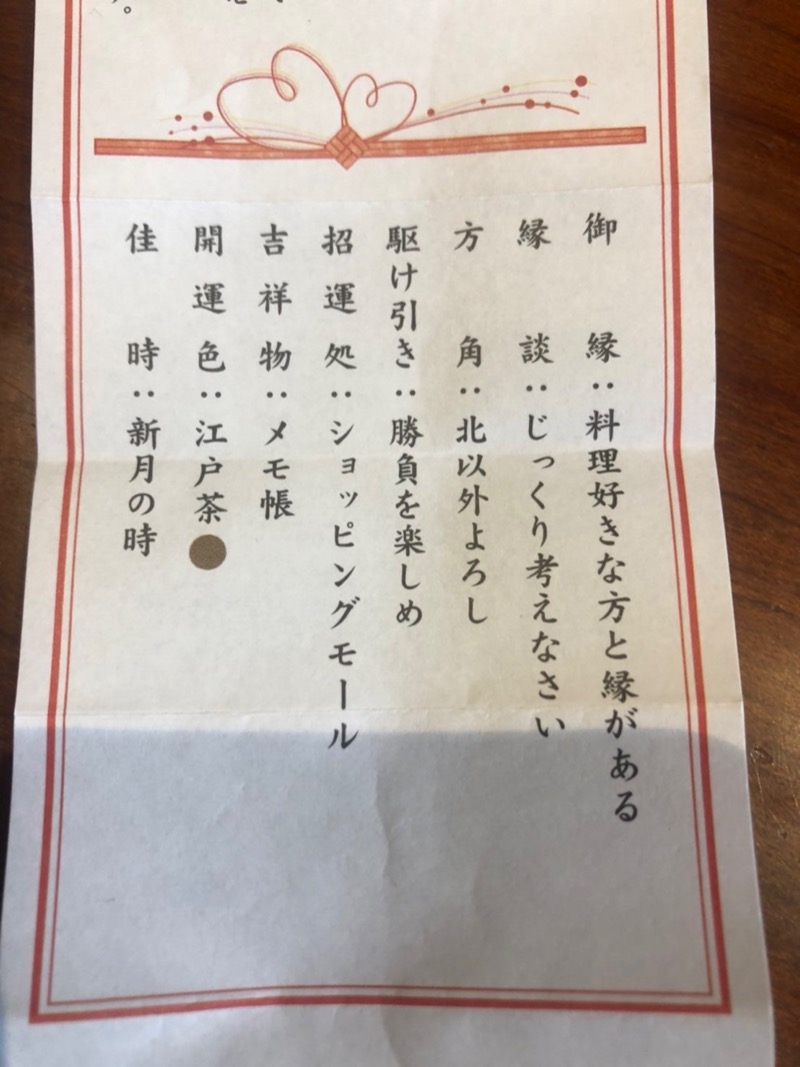 御縁：料理好きな方と縁がある
縁談：じっくり考えなさい
方角：北以外よろし
駆け引き：勝負を楽しめ
招運処：ショッピングモール
吉祥物：メモ帳
開運色：江戸茶
佳時：新月の時